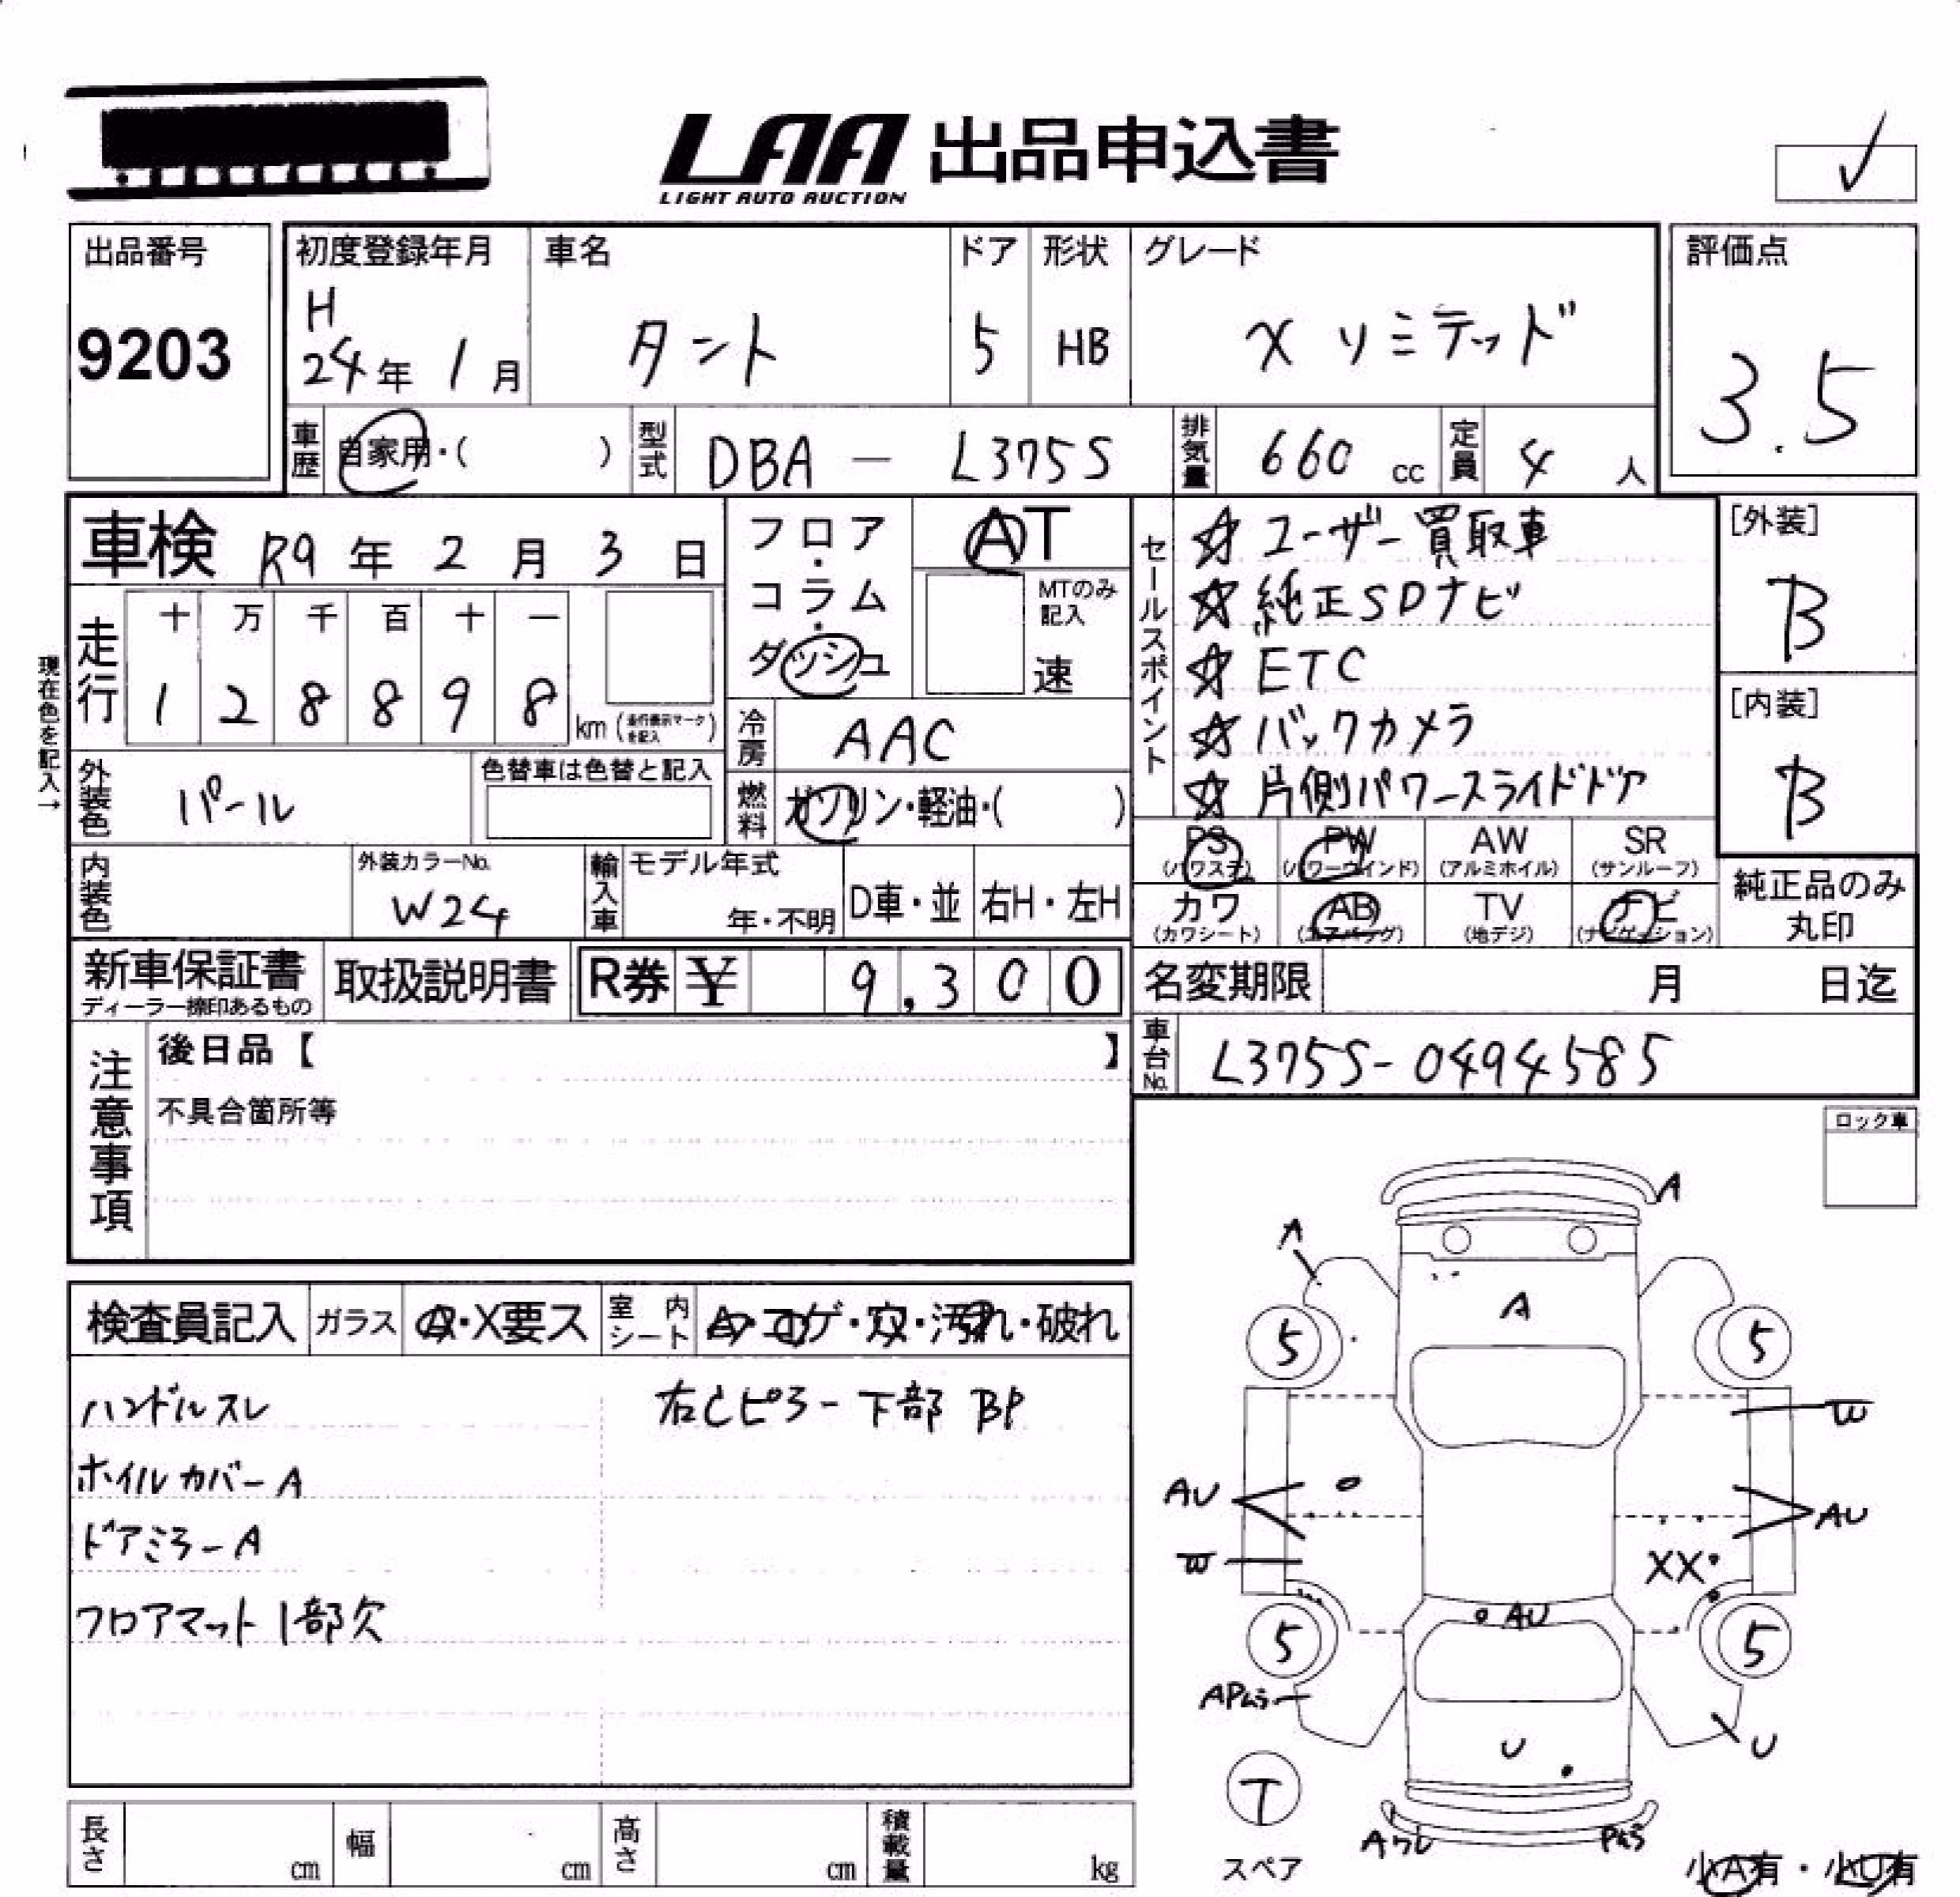 LAA 出品申込書
LIGHT AUTO AUCTION
✓
出品番号
9203
初度登録年月
H
24年 1月
車名
タント
ドア
5
形状
HB
グレード
X リミテッド
評価点
3.5
車歴
自家用・( )
型式
DBA － L375S
排気量
660 cc
定員
4 人
車検 R9年 2月 3日
現在色を記入→
走行
十 万 千 百 十 一
1 2 8 8 9 8
km (走行表示マークを記入)
フロア・コラム・ダッシュ
AT
MTのみ記入
速
冷房
AAC
燃料
ガソリン・軽油・( )
外装色
パール
色替車は色替と記入
内装色
外装カラーNo.
W24
輸入車
モデル年式
年・不明
D車・並
右H・左H
セールスポイント
☆ユーザー買取車
☆純正SDナビ
☆ETC
☆バックカメラ
☆片側パワースライドドア
[外装]
B
[内装]
B
PS AW SR PW
(パワステ) (パワーウインド) (アルミホイル) (サンルーフ)
カワ AB TV ナビ
(カワシート) (エアバッグ) (地デジ) (ナビゲーション)
純正品のみ
丸印
新車保証書
ディーラー捺印あるもの
取扱説明書
R券 ¥ 9,300
名変期限 月 日迄
車台No.
L375S-0494585
注意事項
後日品【 】
不具合箇所等
ロック車
検査員記入
ガラス
A・X要ス
室内シート
A・コゲ・穴・汚れ・破れ
ハンドルスレ
右Cピラー下部 BP
ホイルカバーA
ドアミラーA
フロアマット1部欠
A
A
A
5
5
W
AU
AU
W
XX
AU
5
5
APムラ
U
U
T
スペア
Aワレ
Pムラ
小A有・小U有
長さ cm
幅 cm
高さ cm
積載量 kg